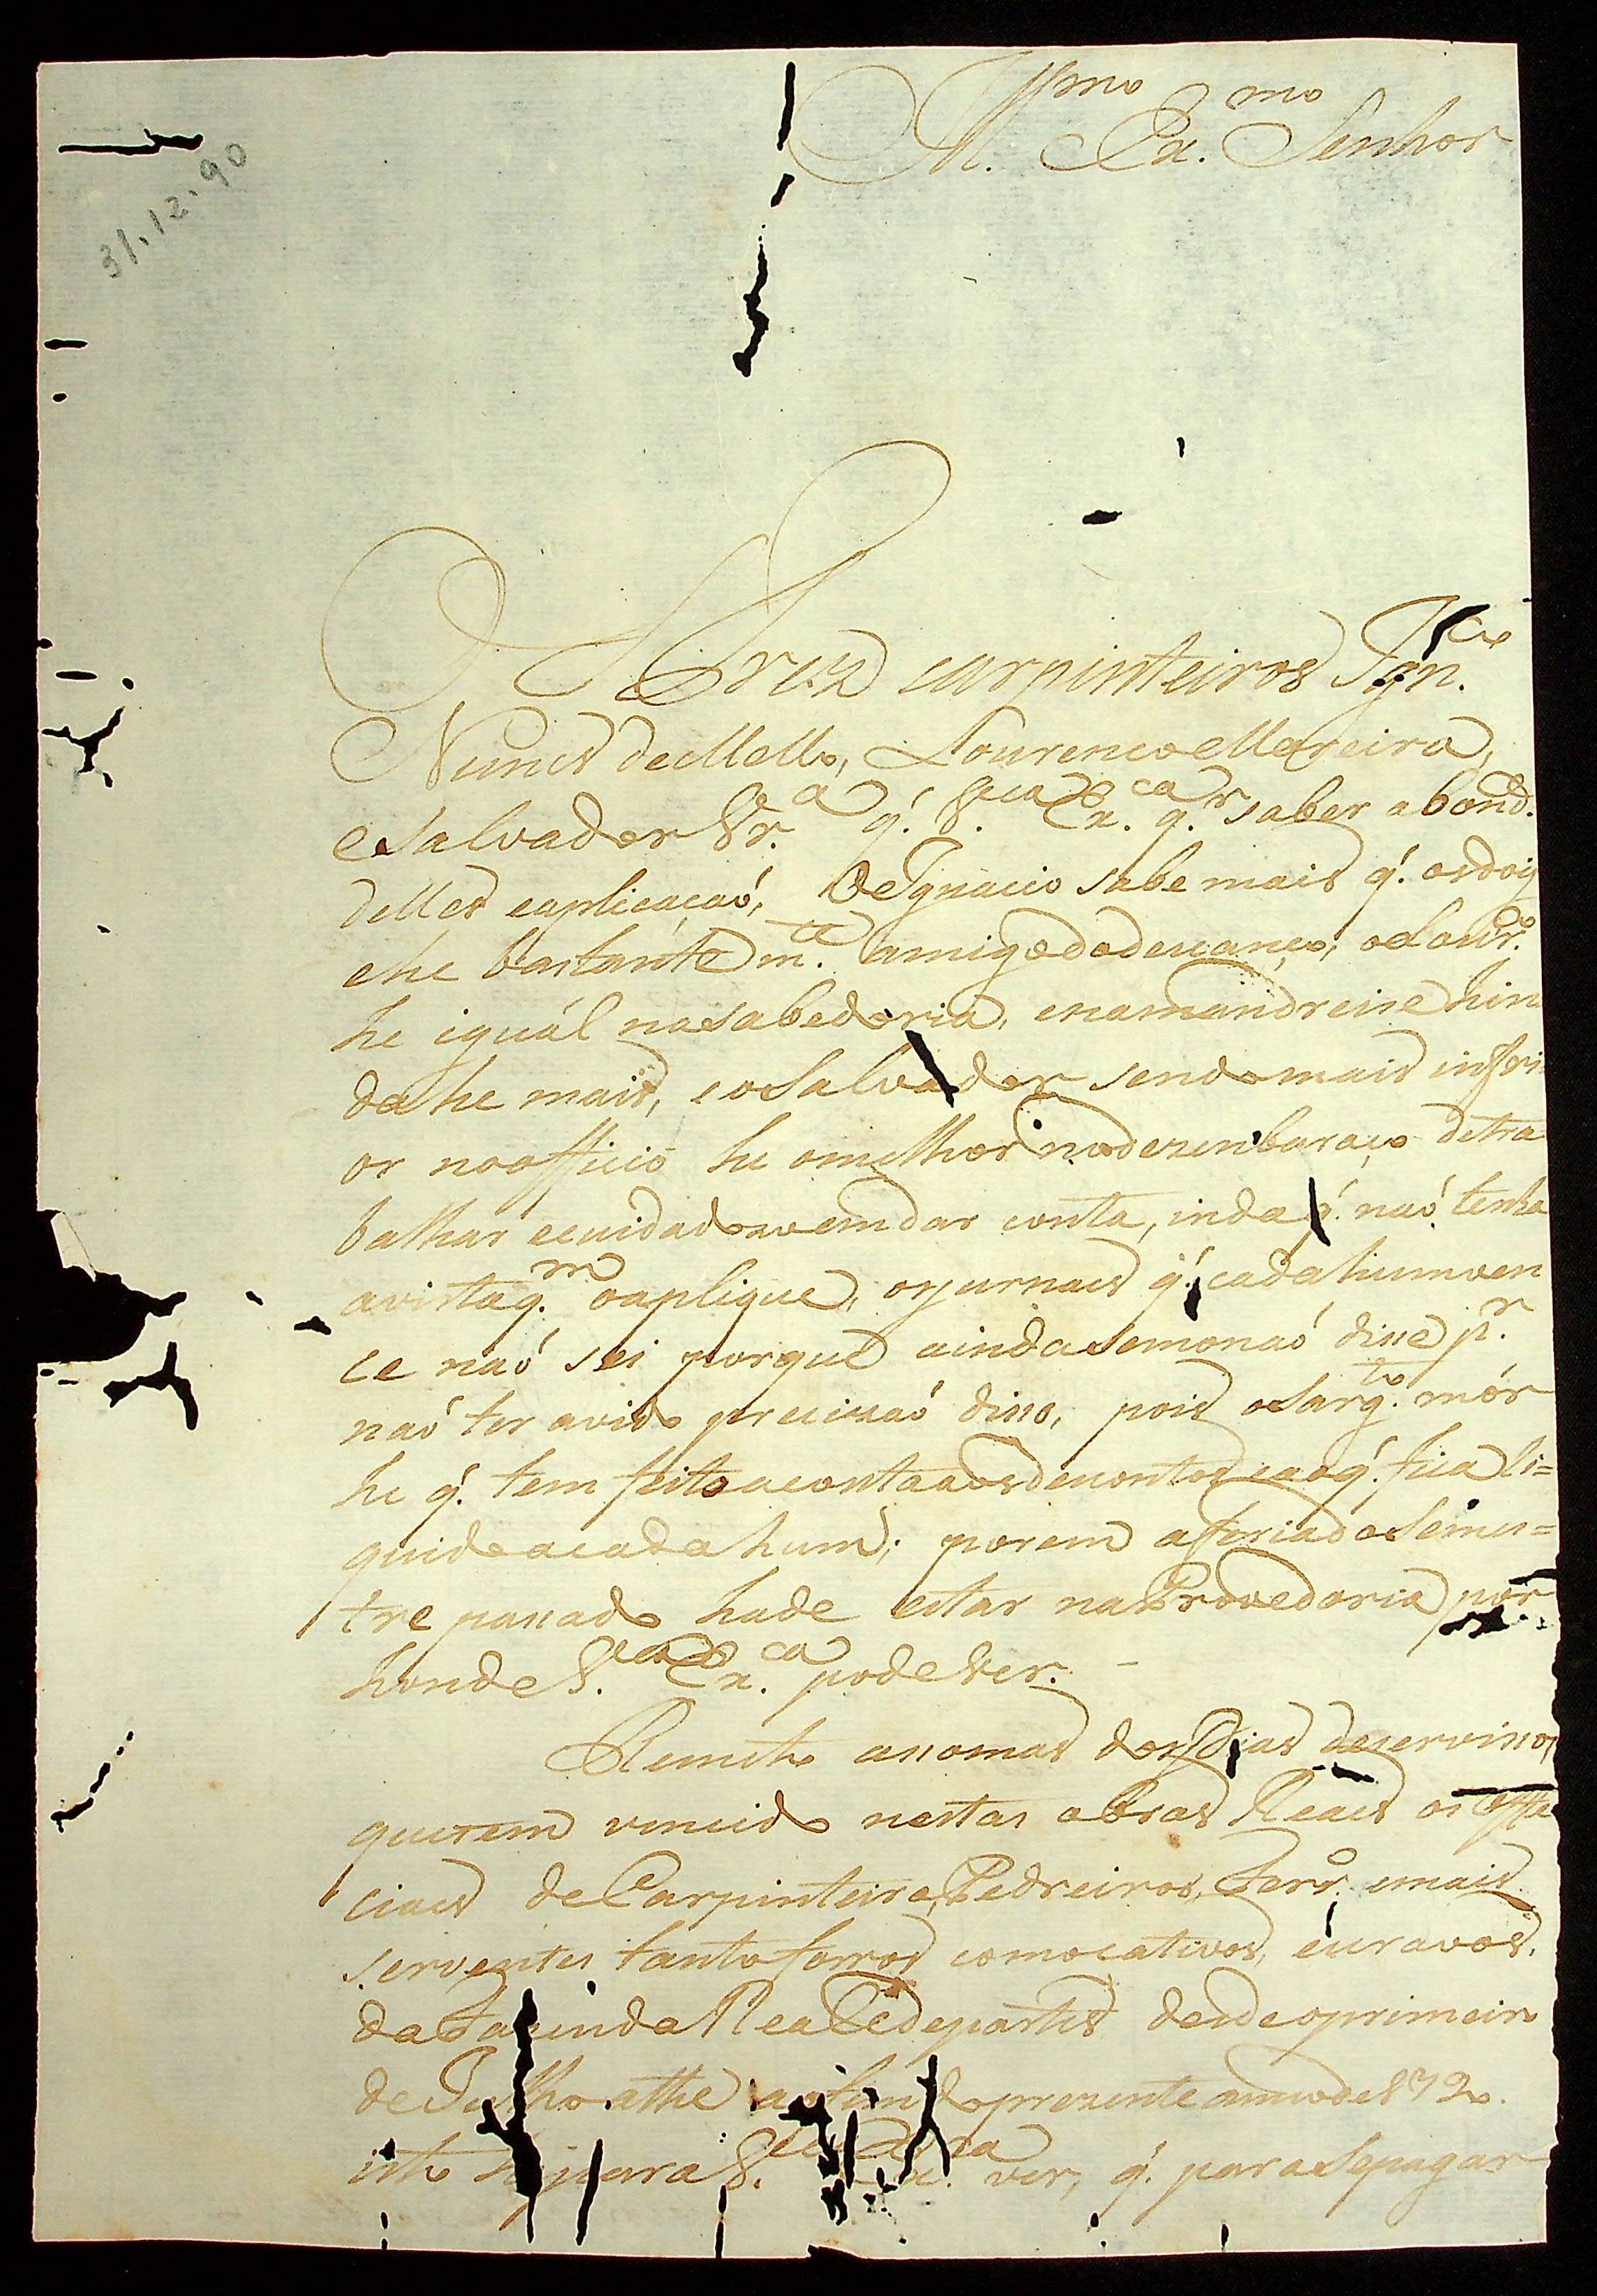 Ill.mo Ex.mo Senhor
31.12.90
Os trez carpinteiros Ign.co
Nunes de Mello, Lourenco Moreira,
e Salvador Vr.a q'. V.a Ex.ca q.r saber a bond.e
delles e aplicação, O Ignacio sabe mais q'. os dois
e he bastante m.te amigo do descanço; o Lour.o
he iguál na sabedoria, e na mandreice hin
da he mais, e o Salvador sendo mais inferi
or no officio he o milhor no dezenbaraço de tra
balhar e cuidadozo em dar conta, inda q'. naó tenha
a vista q.m o aplique, os jurnaes q'. cada hum ven
ce naó sei porque ainda se mo naó disse p.r
naó ter avido precizaó disso, pois o Sarg.to mór
he q'. tem feito a conta aos descontos e ao q'. fica li=
quido a cada hum; porem a feria do Semes=
tre passado hade estar na Provedoria por
honde V.a Ex.ca pode ver. -
Remeto as somas dos Dias de servisso,
que tem vencido nestas obras Reaes os Offi
ciaes de Carpinteiro, Pedreiros, Ferr.o e mais
serventes tanto forros como cativos, escravos,
da Fazenda Real e de partes desde o primeiro
de Julho athe ao fim do prezente anno de 1772.
isto he para V.a Ex.ca ver, q'. para se pagar